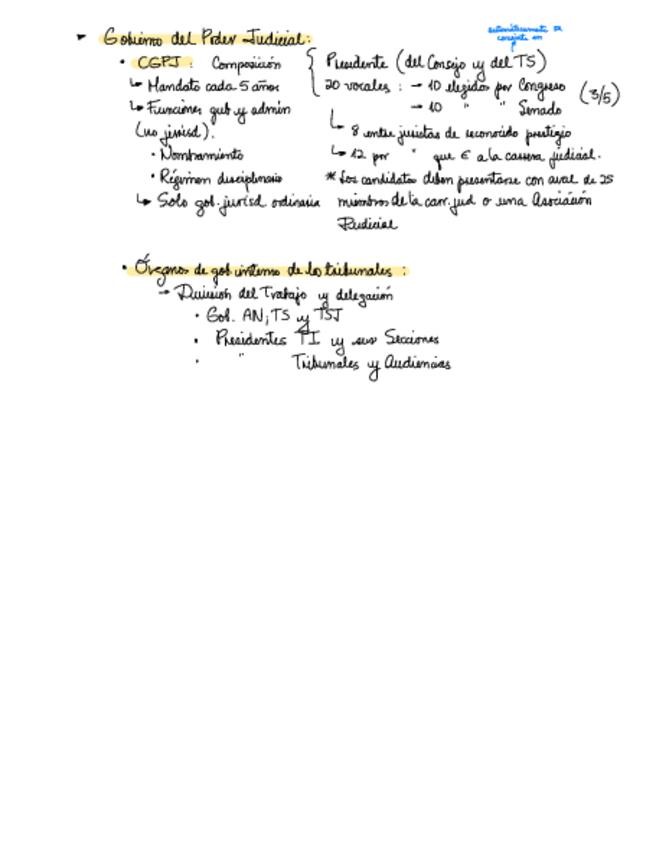 ► Gobierno del Poder Judicial:
automáticamente se
convierte en
• CGPJ: Composición { Presidente (del Consejo y del TS)
↳ Mandato cada 5 años 20 vocales: → 10 elegidos por Congreso (3/5)
↳ Funciones gub y admin → 10 " " Senado
(no jurisd). ↳ 8 entre juristas de reconocido prestigio
• Nombramiento ↳ 12 por " que ∈ a la carrera judicial.
• Régimen disciplinario * Los candidatos deben presentarse con aval de 25
↳ Solo gob. jurisd ordinaria miembros de la carr. jud o una Asociación
Judicial
• Órganos de gob interno de los tribunales:
→ División del Trabajo y delegación
• Gob. AN, TS y TSJ
• Presidentes TI y sus Secciones
• " Tribunales y Audiencias